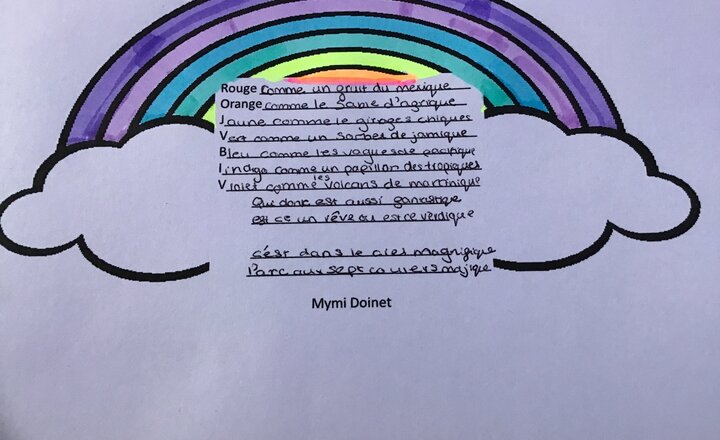 Rouge comme un gruit du mexique
Orange comme le sable d'agrique
Jaune comme le girages chiques
Vert comme un sorbet de jamique
Bleu comme les vagues de pacifique
Indigo comme un papillon des tropiques
Violet comme les volcans de martinique
Qui donc est aussi gantastique
est ce un rêve ou est ce vérdique
c'est dans le ciel magnigique
l'arc aux sept couleurs majique
Mymi Doinet